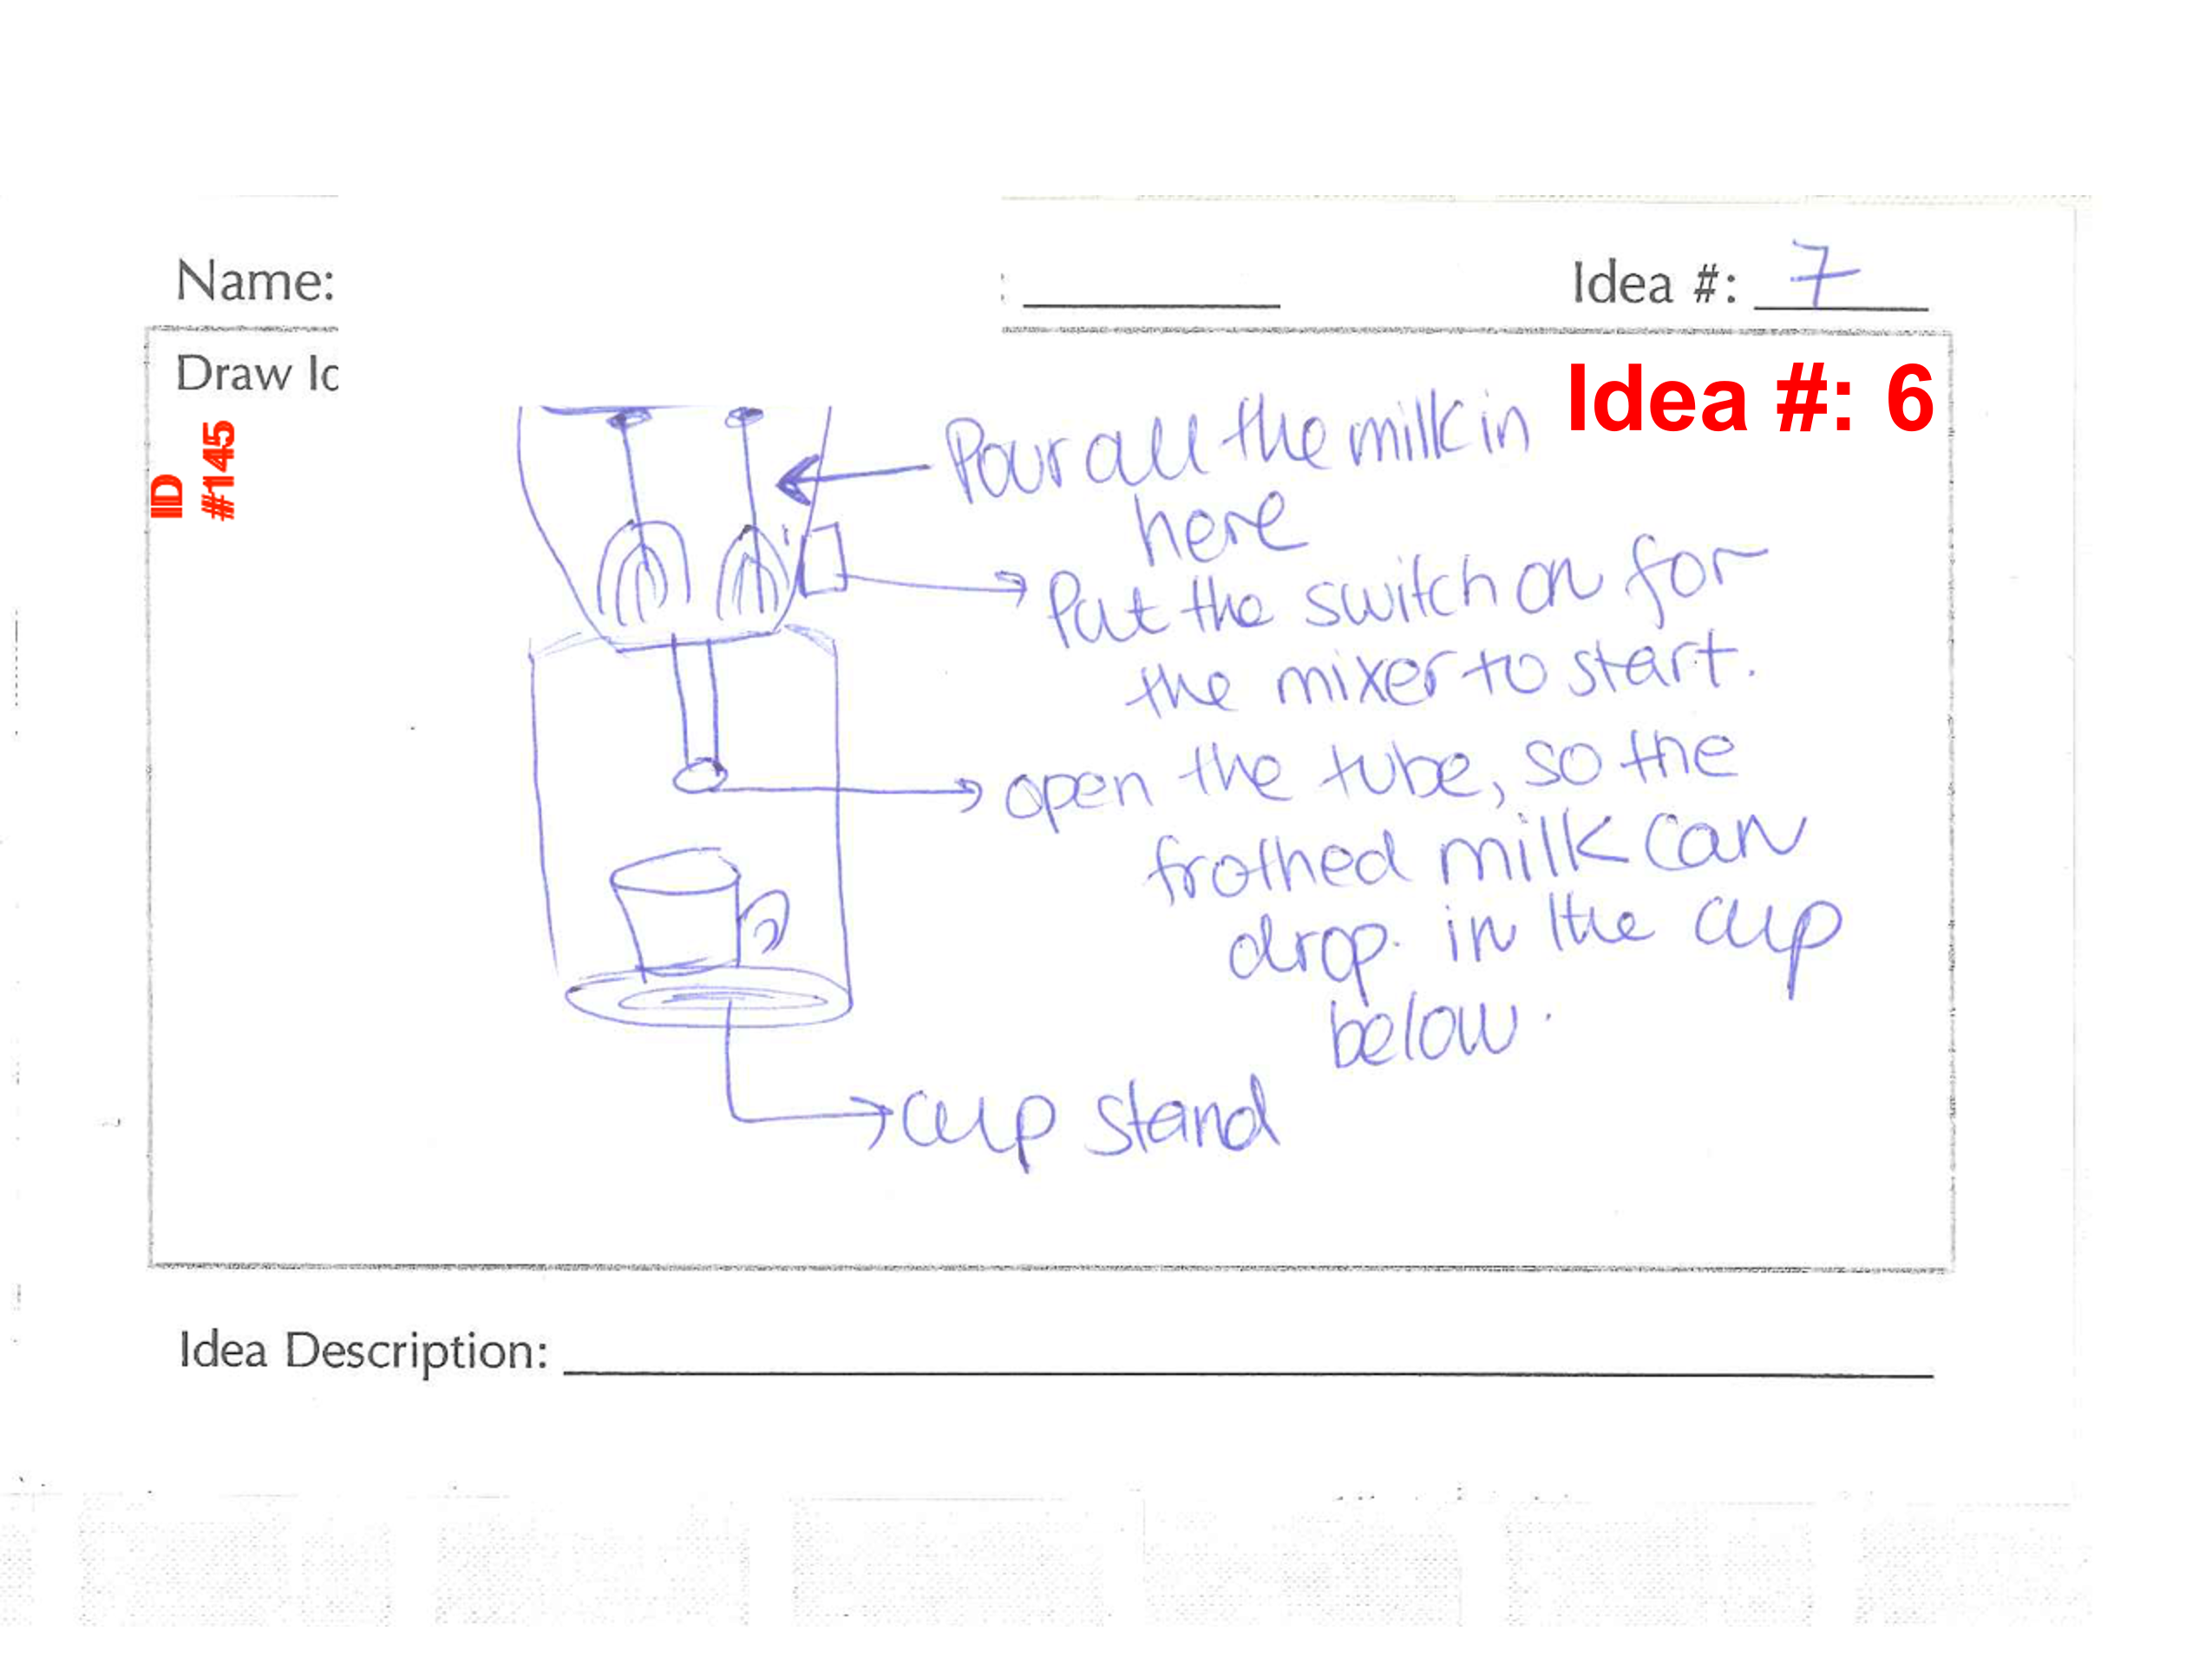 Name:
: Idea #: 7
Draw Id
Idea #: 6
ID
#145
Pour all the milk in
here
Put the switch on for
the mixer to start.
open the tube, so the
frothed milk can
drop. in the cup
below.
cup stand
Idea Description: